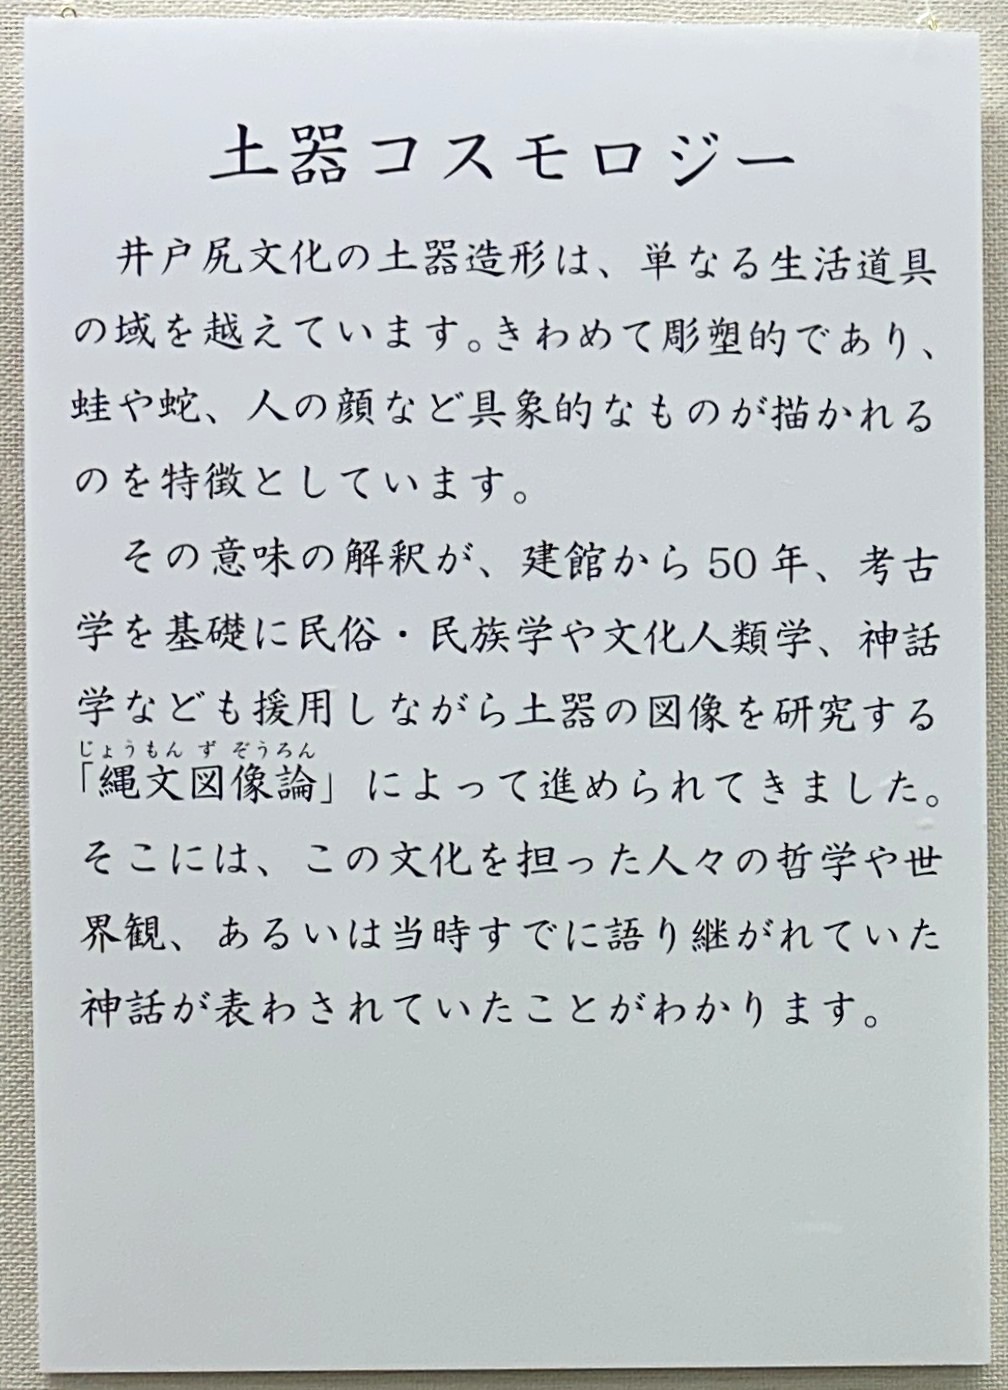 土器コスモロジー
井戸尻文化の土器造形は、単なる生活道具
の域を越えています。きわめて彫塑的であり、
蛙や蛇、人の顔など具象的なものが描かれる
のを特徴としています。
その意味の解釈が、建館から50年、考古
学を基礎に民俗・民族学や文化人類学、神話
学なども援用しながら土器の図像を研究する
じょうもん ず ぞうろん
「縄文図像論」によって進められてきました。
そこには、この文化を担った人々の哲学や世
界観、あるいは当時すでに語り継がれていた
神話が表わされていたことがわかります。